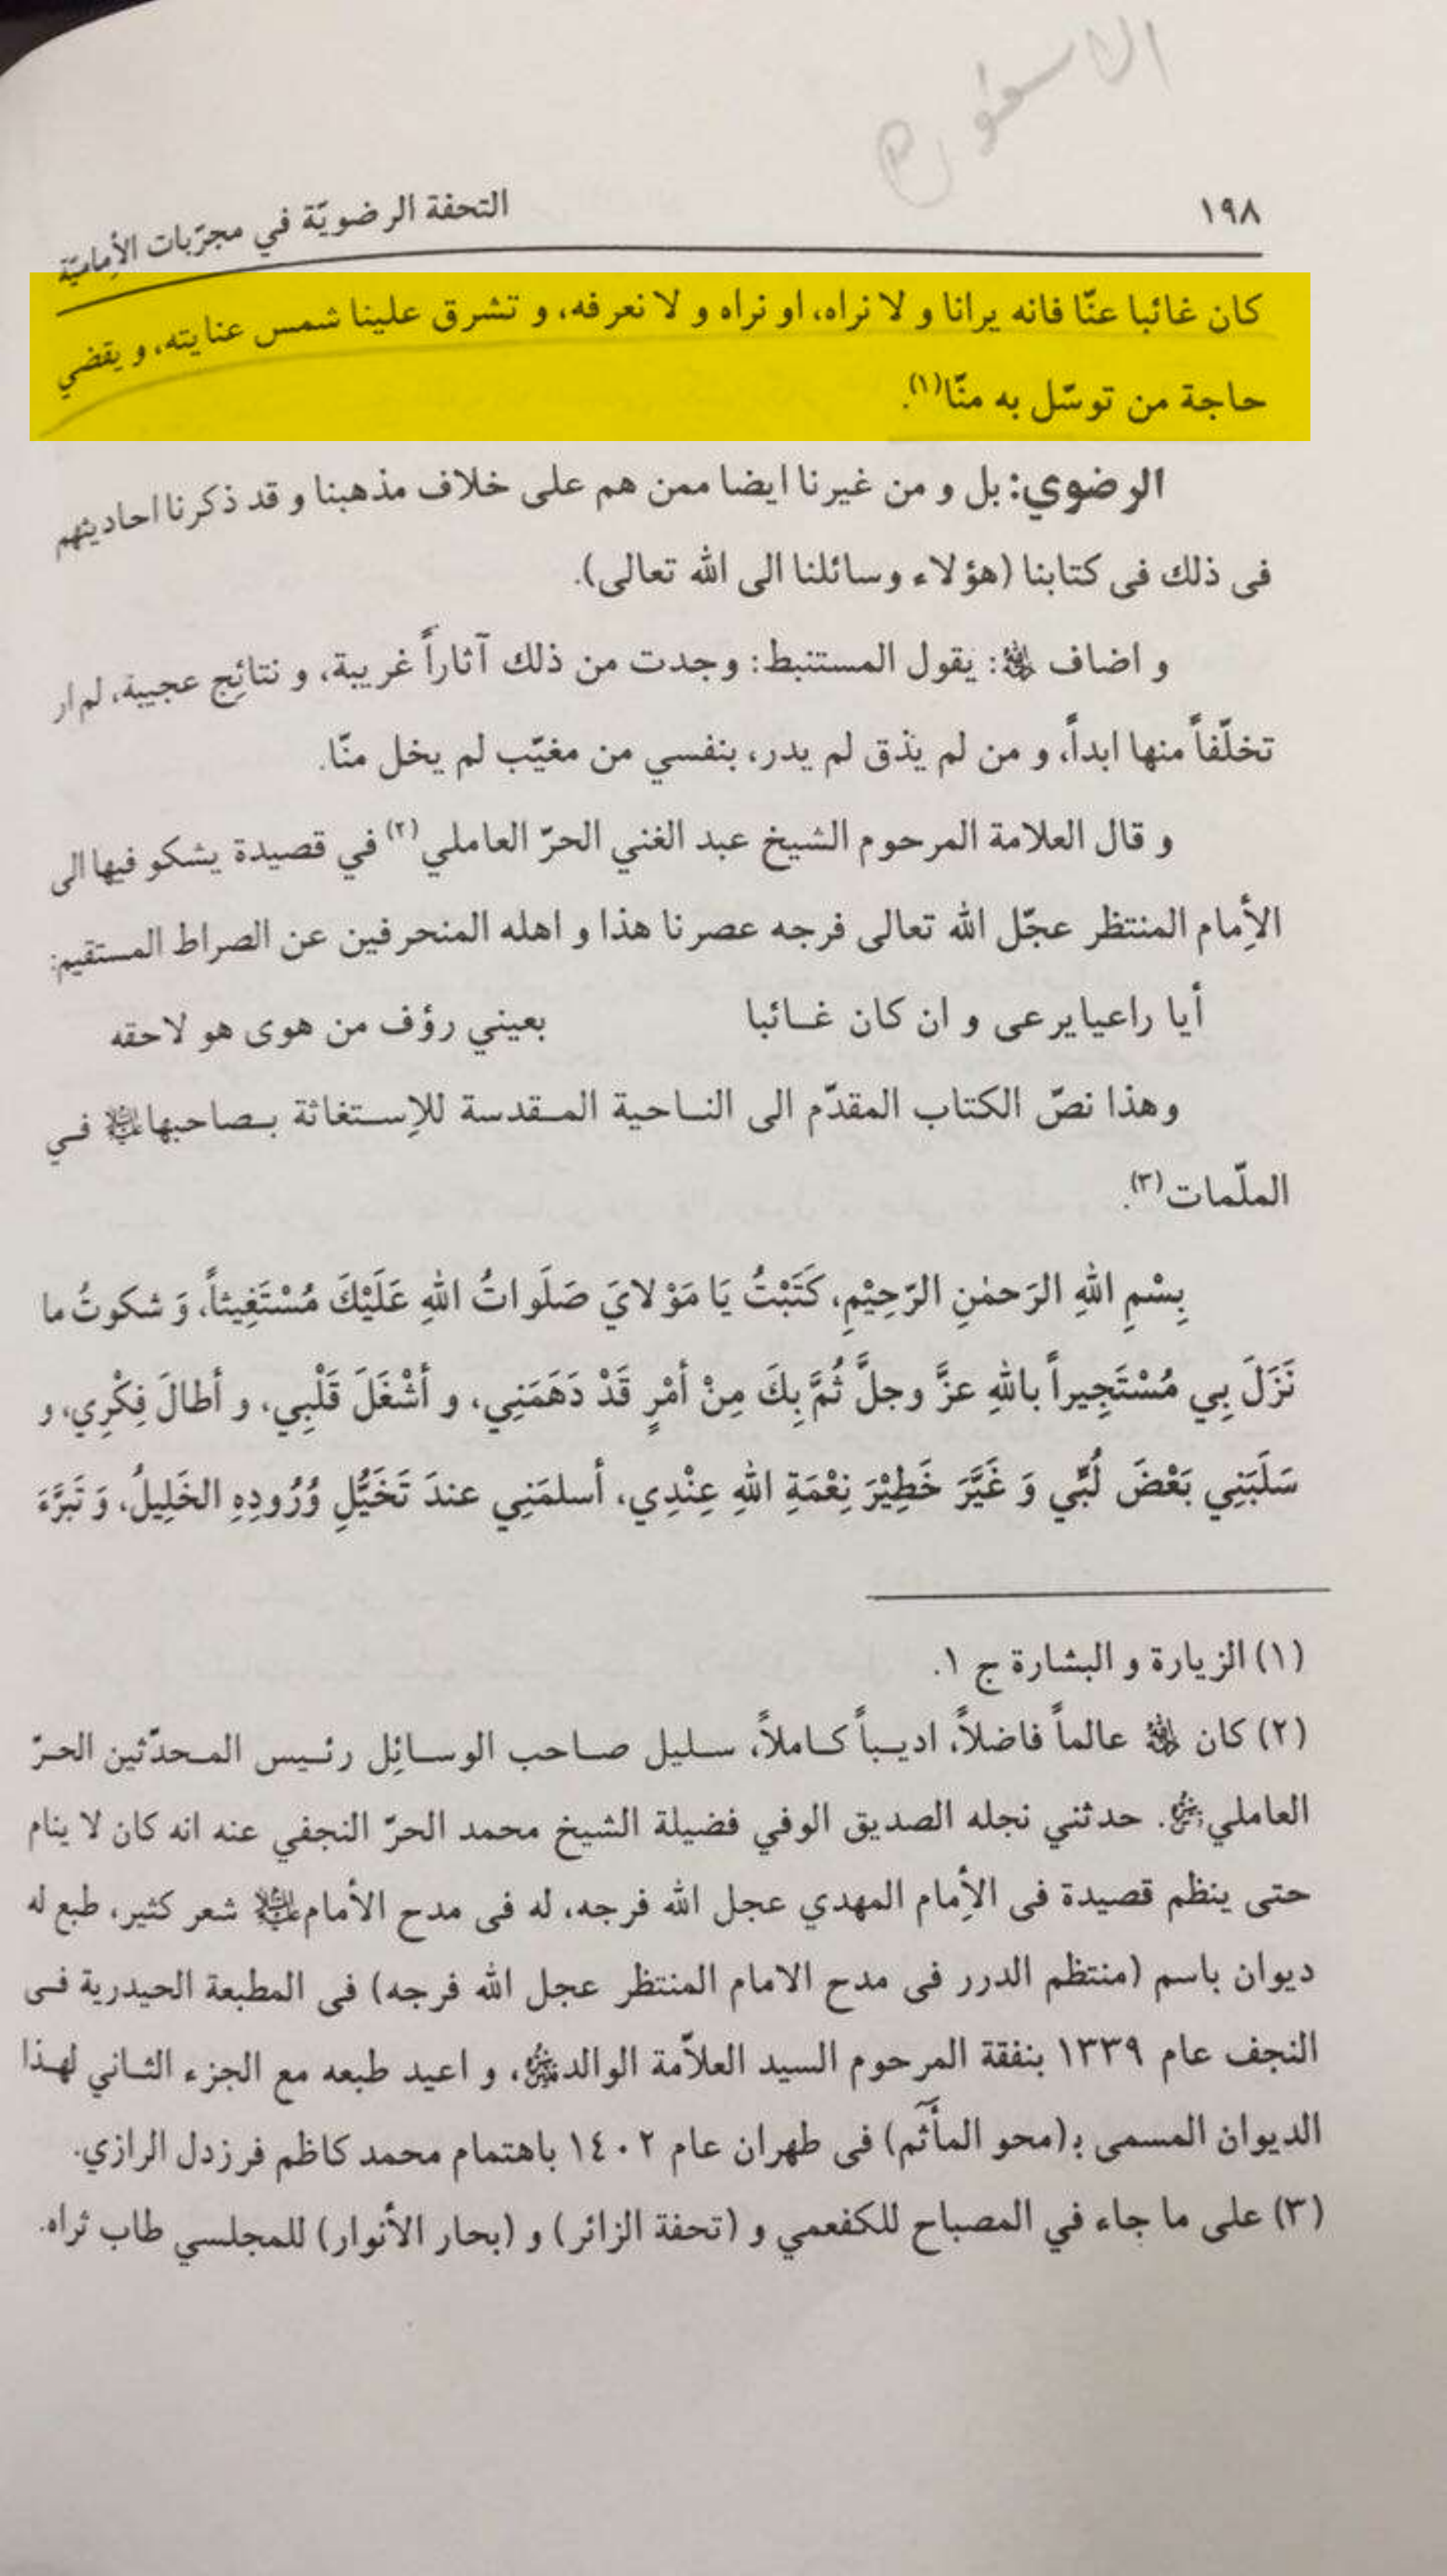 ١٩٨
التحفة الرضويّة في مجرّبات الأماميّة
كان غائبا عنّا فانه يرانا و لا نراه، او نراه و لا نعرفه، و تشرق علينا شمس عنايته، و يقضي
حاجة من توسّل به منّا(١).
الرضوي: بل و من غيرنا ايضا ممن هم على خلاف مذهبنا و قد ذكرنا احاديثهم
فى ذلك فى كتابنا (هؤلاء وسائلنا الى الله تعالى).
و اضاف ﷫: يقول المستنبط: وجدت من ذلك آثاراً غريبة، و نتائج عجيبة، لم ار
تخلّفاً منها ابداً، و من لم يذق لم يدر، بنفسي من مغيّب لم يخل منّا.
و قال العلامة المرحوم الشيخ عبد الغني الحرّ العاملي(٢) في قصيدة يشكو فيها الى
الأِمام المنتظر عجّل الله تعالى فرجه عصرنا هذا و اهله المنحرفين عن الصراط المستقيم:
أيا راعيا يرعى و ان كان غائبا بعيني رؤف من هوى هو لاحقه
وهذا نصّ الكتاب المقدّم الى الناحية المقدسة للإستغاثة بصاحبها ﷷ في
الملّمات(٣).
بِسْمِ اللهِ الرَحمٰنِ الرَّحِيْمِ، كَتَبْتُ يَا مَوْلايَ صَلَواتُ اللهِ عَلَيْكَ مُسْتَغِيثاً، وَ شكوتُ ما
نَزَلَ بِي مُسْتَجِيراً باللهِ عزَّ وجلَّ ثُمَّ بِكَ مِنْ أمْرٍ قَدْ دَهَمَنِي، و أشْغَلَ قَلْبِي، و أطالَ فِكْرِي، و
سَلَبَنِي بَعْضَ لُبّي وَ غَيَّرَ خَطِيْرَ نِعْمَةِ اللهِ عِنْدِي، أسلمَنِي عندَ تَخَيُّلِ وُرُودِهِ الخَلِيلُ، وَ تَبَرَّءَ
(١) الزيارة و البشارة ج ١.
(٢) كان ﷫ عالماً فاضلاً، اديباً كاملاً، سليل صاحب الوسائل رئيس المحدّثين الحرّ
العاملي ﷱ. حدثني نجله الصديق الوفي فضيلة الشيخ محمد الحرّ النجفي عنه انه كان لا ينام
حتى ينظم قصيدة فى الأِمام المهدي عجل الله فرجه، له فى مدح الأمام ﷷ شعر كثير، طبع له
ديوان باسم (منتظم الدرر فى مدح الامام المنتظر عجل الله فرجه) فى المطبعة الحيدرية فى
النجف عام ١٣٣٩ بنفقة المرحوم السيد العلاّمة الوالد ﷱ، و اعيد طبعه مع الجزء الثاني لهذا
الديوان المسمى بـ(محو المأثم) فى طهران عام ١٤٠٢ باهتمام محمد كاظم فرزدل الرازي.
(٣) على ما جاء في المصباح للكفعمي و (تحفة الزائر) و (بحار الأنوار) للمجلسي طاب ثراه.